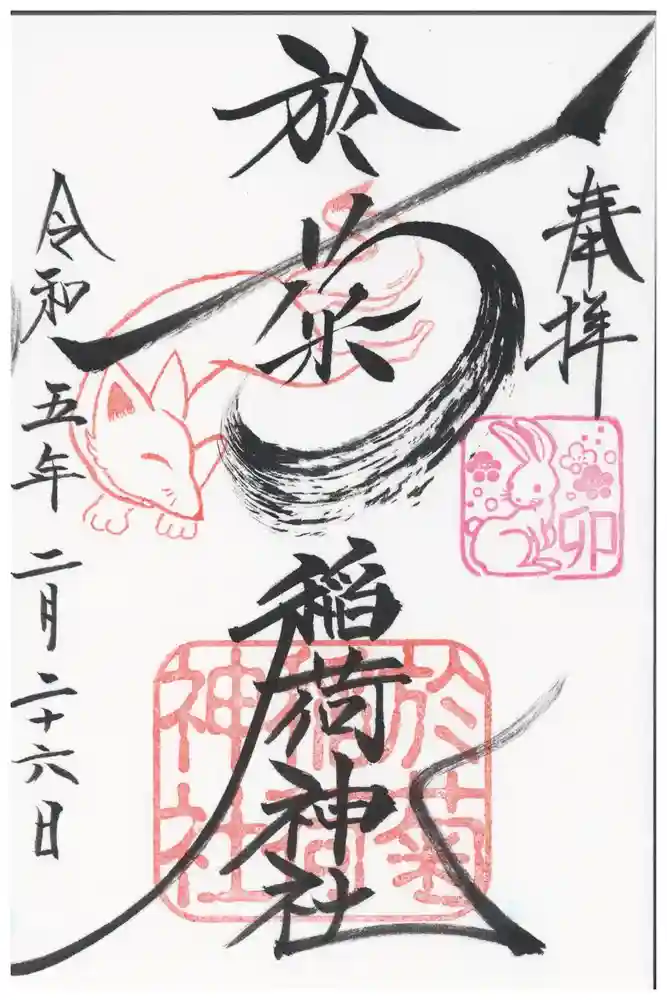 奉拝
卯
於菊稲荷神社
於菊
稲荷
神社
令和五年二月二十六日